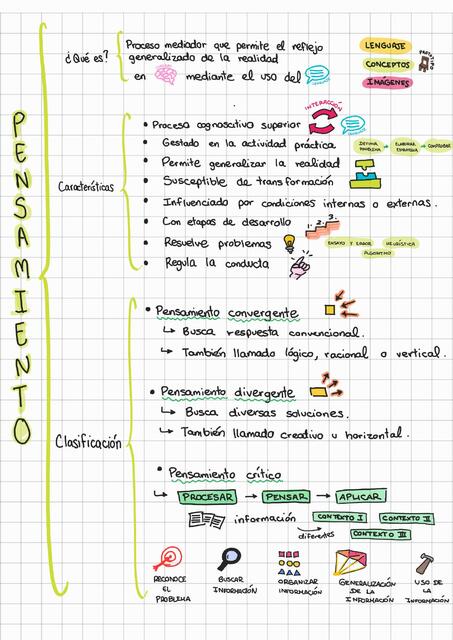 PENSAMIENTO
¿Qué es?
Proceso mediador que permite el reflejo
generalizado de la realidad
en mediante el uso del
LENGUAJE
CONCEPTOS
IMÁGENES
Características
INTERACCIÓN
• Proceso cognoscitivo superior
• Gestado en la actividad práctica
DEFINIR PROBLEMA → ELABORAR ESTRATEGIA → COMPROBAR
• Permite generalizar la realidad
• Susceptible de transformación
• Influenciado por condiciones internas o externas.
• Con etapas de desarrollo
1. 2. 3.
• Resuelve problemas
ENSAYO Y ERROR
HEURÍSTICA
ALGORITMO
• Regula la conducta
Clasificación
• Pensamiento convergente
↳ Busca respuesta convencional.
↳ También llamado lógico, racional o vertical.
• Pensamiento divergente
↳ Busca diversas soluciones.
↳ También llamado creativo u horizontal.
• Pensamiento crítico
↳ PROCESAR → PENSAR → APLICAR
información
diferentes
CONTEXTO I
CONTEXTO II
CONTEXTO III
RECONOCE
EL
PROBLEMA
BUSCAR
INFORMACIÓN
ORGANIZAR
INFORMACIÓN
GENERALIZACIÓN
DE LA
INFORMACIÓN
USO DE
LA
INFORMACIÓN